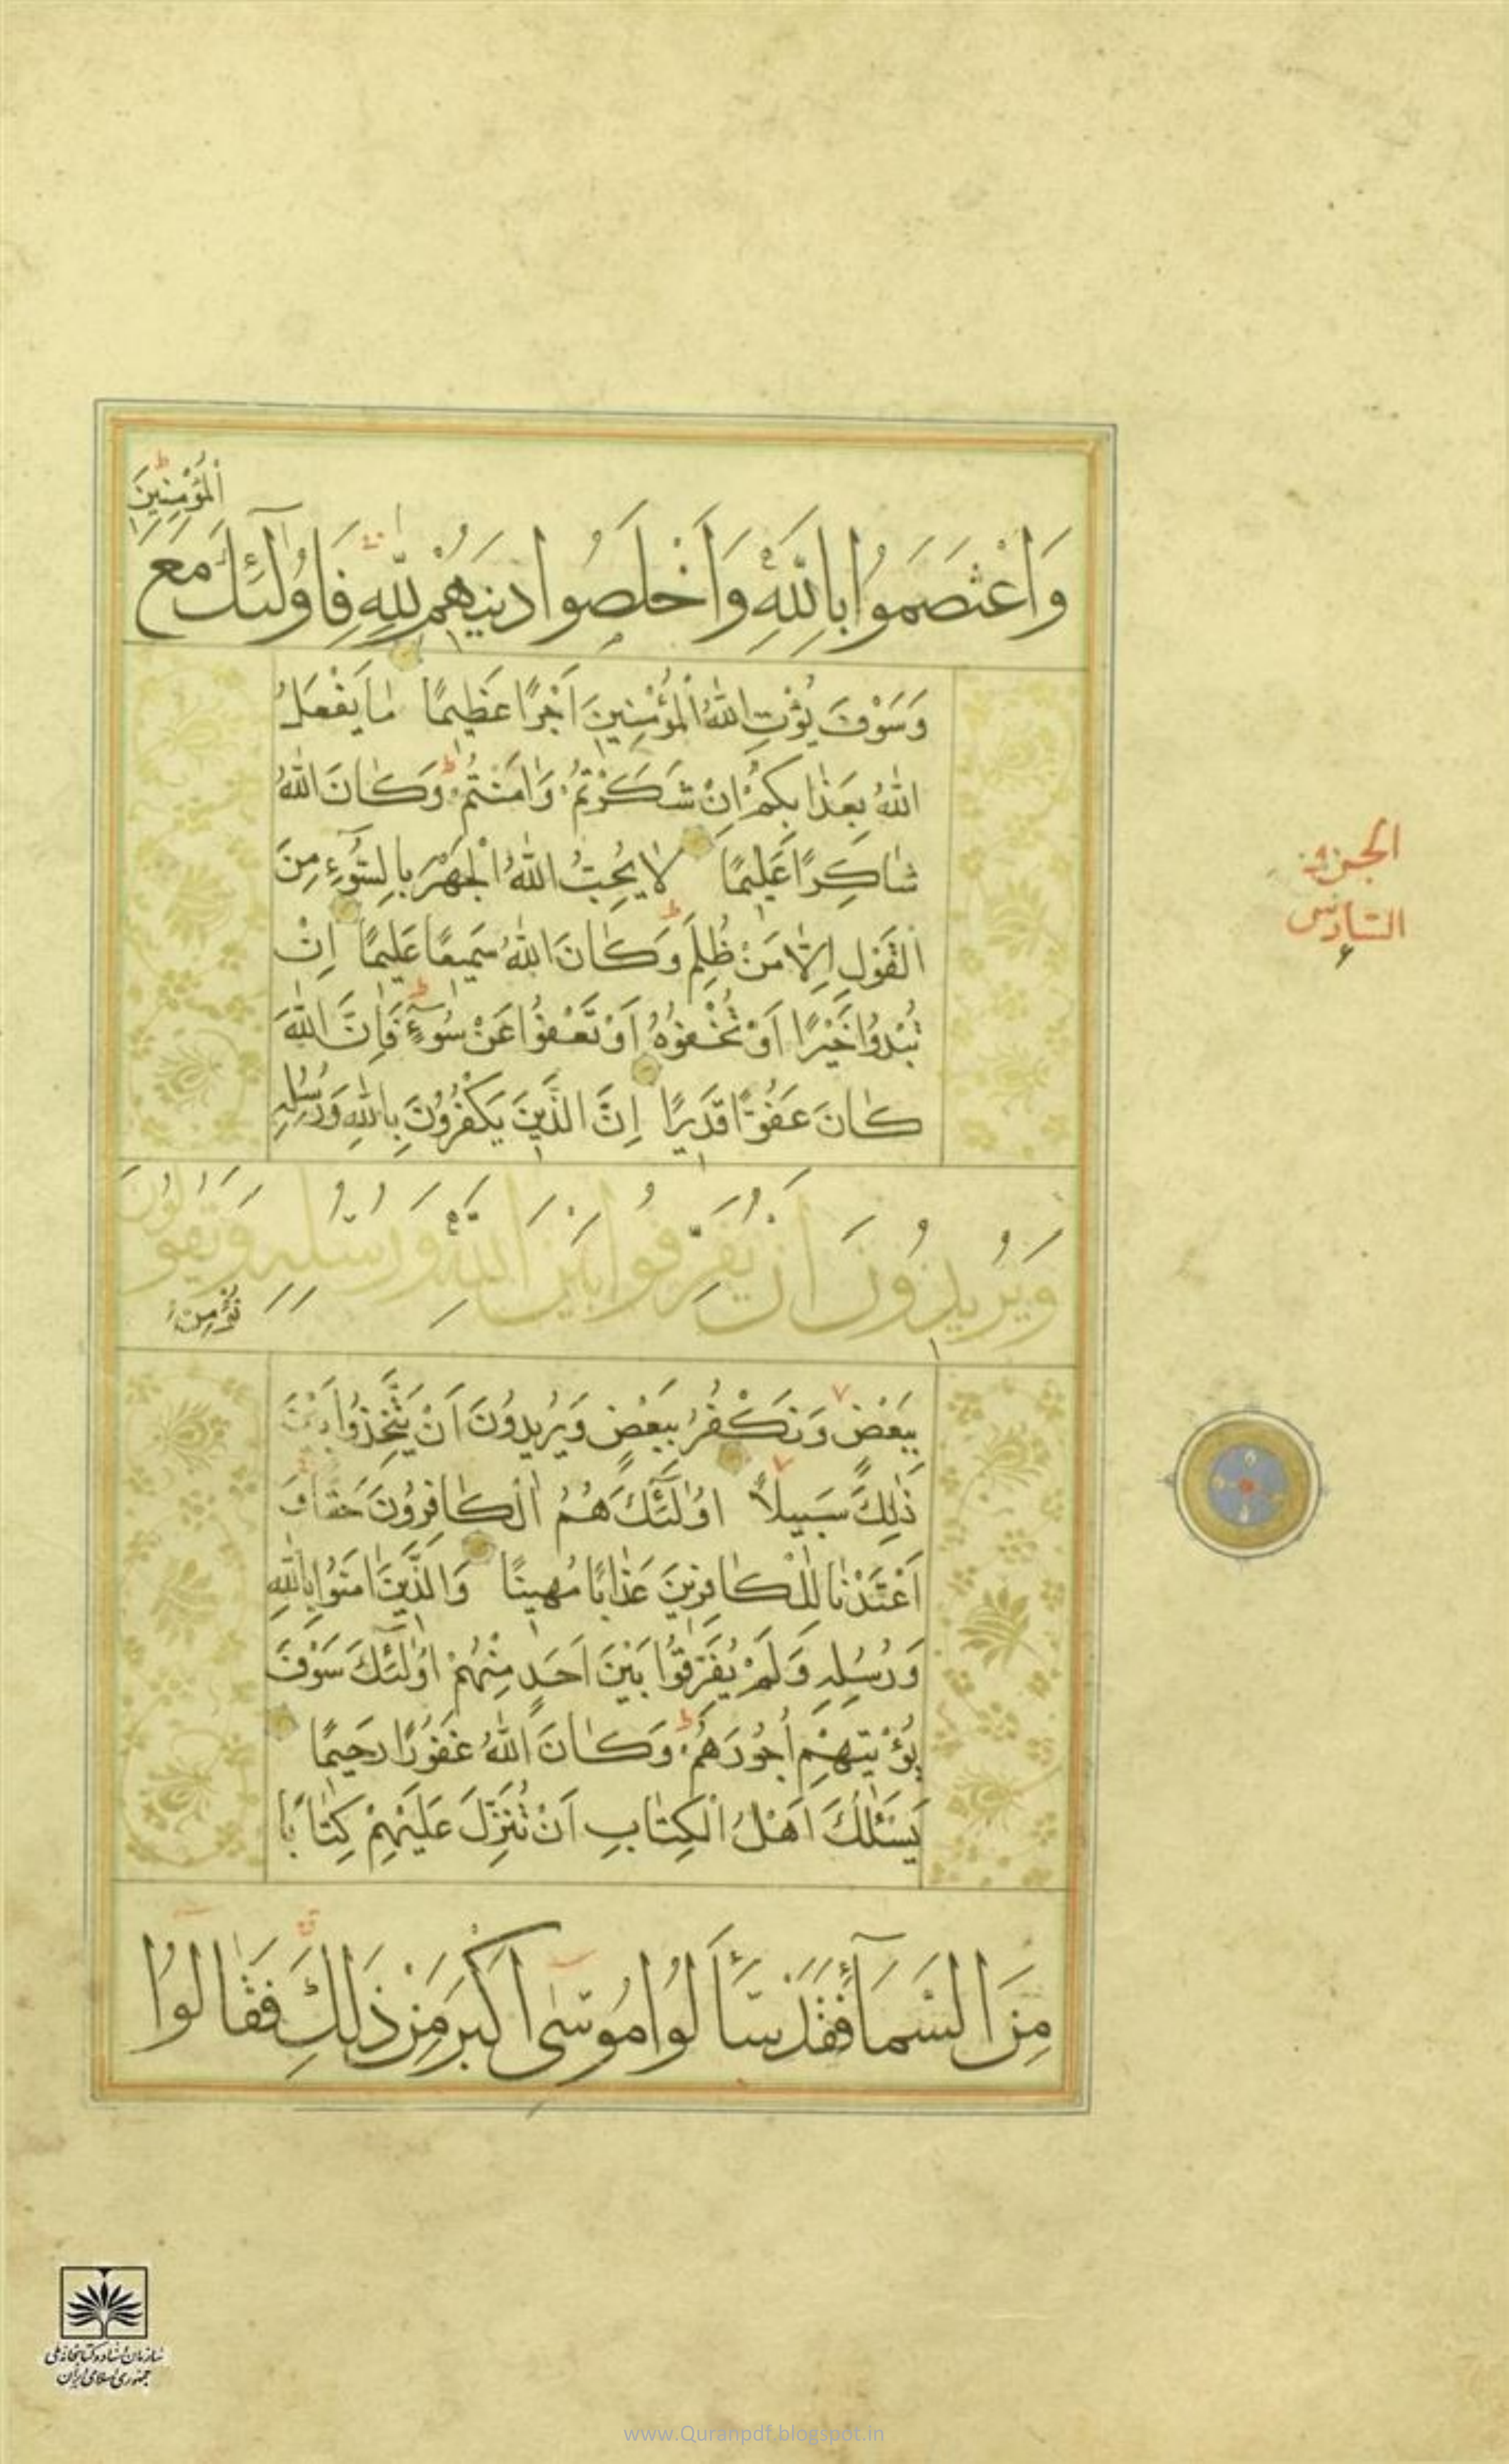 ٱلْمُؤْمِنِينَ
وَاعْتَصَمُوا بِاللَّهِ وَأَخْلَصُوا دِينَهُمْ لِلَّهِ فَاُولٰٓئِكَ مَعَ
وَسَوْفَ يُؤْتِ اللهُ الْمُؤْمِنِينَ اَجْرًا عَظِيمًا مٰا يَفْعَلُ
اللهُ بِعَذٰابِكُمْ اِنْ شَكَرْتُمْ وَاٰمَنْتُمْ وَكٰانَ اللهُ
شٰاكِرًا عَلِيمًا لٰا يُحِبُّ اللهُ الْجَهْرَ بِالسُّوٓءِ مِنَ
الْقَوْلِ اِلّٰا مَنْ ظُلِمَ وَكٰانَ اللهُ سَمِيعًا عَلِيمًا اِنْ
تُبْدُوا خَيْرًا اَوْ تُخْفُوهُ اَوْ تَعْفُوا عَنْ سُوٓءٍ فَاِنَّ اللهَ
كٰانَ عَفُوًّا قَدِيرًا اِنَّ الَّذِينَ يَكْفُرُونَ بِاللهِ وَرُسُلِهِ
وَيُرِيدُونَ اَنْ يُفَرِّقُوا بَيْنَ اللَّهِ وَرُسُلِهِ وَيَقُولُونَ
نُؤْمِنُ
بِبَعْضٍ وَنَكْفُرُ بِبَعْضٍ وَيُرِيدُونَ اَنْ يَتَّخِذُوا بَيْنَ
ذٰلِكَ سَبِيلًا اُولٰٓئِكَ هُمُ الْكٰافِرُونَ حَقًّا وَ
اَعْتَدْنٰا لِلْكٰافِرِينَ عَذٰابًا مُهِينًا وَالَّذِينَ اٰمَنُوا بِاللهِ
وَرُسُلِهِ وَلَمْ يُفَرِّقُوا بَيْنَ اَحَدٍ مِنْهُمْ اُولٰٓئِكَ سَوْفَ
يُؤْتِيهِمْ اُجُورَهُمْ وَكٰانَ اللهُ غَفُورًا رَحِيمًا
يَسْئَلُكَ اَهْلُ الْكِتٰابِ اَنْ تُنَزِّلَ عَلَيْهِمْ كِتٰابًا
مِنَ السَّمَآءِ فَقَدْ سَأَلُوا مُوسٰى اَكْبَرَ مِنْ ذَلِكَ فَقٰالُوا
الجزء
السادس
۶
سازمان اسناد و کتابخانه ملی
جمهوری اسلامی ایران
www.Quranpdf.blogspot.in